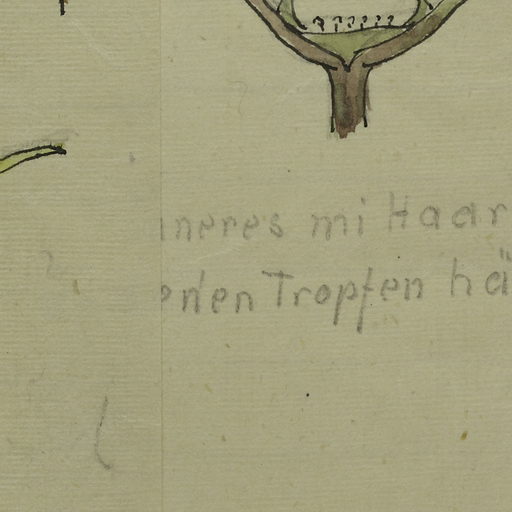 nneres mi Haar
enen Tropfen hä